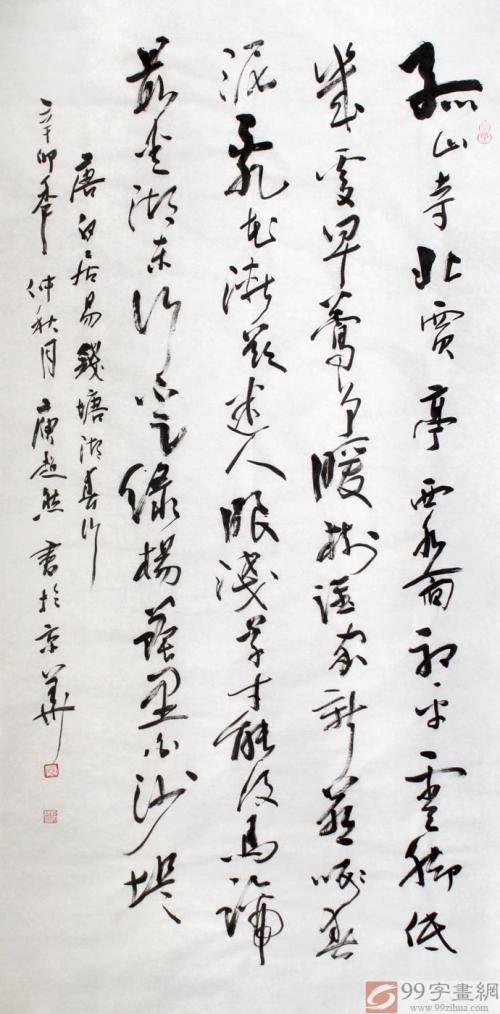 孤山寺北賈亭西水面初平雲脚低
幾處早鶯爭暖樹誰家新燕啄春
泥亂花漸欲迷人眼淺草才能没馬蹄
最愛湖東行不足綠楊蔭里白沙堤
唐白居易錢塘湖春行
辛卯年仲秋月超然書於京華
99字畫網
www.99zihua.com